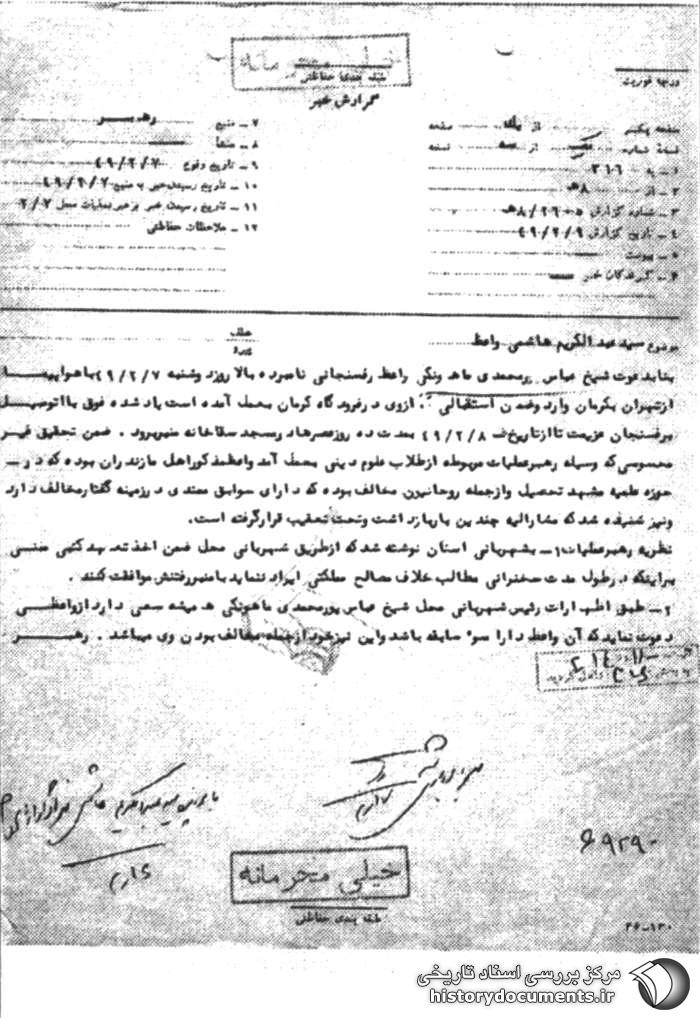 خیلی محرمانه
طبقه بندی حفاظتی
گزارش خبر
درجه فوریت
صفحه یکم از یک صفحه
نسخه شماره یک از سه نسخه
۱ – به ۳۱۶
۲ – از ۸ه‍
۳ – شماره گزارش ۲۶۰۵/۸ه‍
۴ – تاریخ گزارش ۴۹/۲/۹
۵ – پیوست
۶ – گیرندگان خبر
۷ – منبع رهبر
۸ – منشأ
۹ – تاریخ وقوع ۴۹/۲/۷
۱۰ – تاریخ رسیدن خبر به منبع ۴۹/۲/۷
۱۱ – تاریخ رسیدن خبر به رهبر عملیات محل ۲/۷
۱۲ – ملاحظات حفاظتی
موضوع سید عبدالکریم هاشمی واعظ
بنا بدعوت شیخ عباس پورمحمدی ماهونکی واعظ رفسنجانی نامبرده بالا روز دوشنبه ۴۹/۲/۷ با هواپیما
از تهران بکرمان وارد و ضمن استقبالی که از وی در فرودگاه کرمان بعمل آمده است یاد شده فوق با اتومبیل
برفسنجان عزیمت تا از تاریخ ۴۹/۲/۸ بمدت ده روز عصرها در مسجد سقاخانه منبر برود . ضمن تحقیق غیر
محسوسی که وسیله رهبر عملیات مربوطه از طلاب علوم دینی بعمل آمد واعظ مذکور اهل مازندران بوده که در
حوزه علمیه مشهد تحصیل و از جمله روحانیون مخالف بوده که دارای سوابق ممتدی در زمینه گفتار مخالف دارد
و نیز شنیده شد که مشارالیه چندین بار بازداشت و تحت تعقیب قرار گرفته است .
نظریه رهبر عملیات ۱– بشهربانی استان نوشته شد که از طریق شهربانی محل ضمن اخذ تعهد کتبی مبنی
براینکه در طول مدت سخنرانی مطالب خلاف مصالح مملکتی ایراد ننماید با منبر رفتنش موافقت کنند .
۲– طبق اظهارات رئیس شهربانی محل شیخ عباس پورمحمدی ماهونکی همیشه سعی دارد از واعظی
دعوت نماید که آن واعظ دارا سوء سابقه باشد و این نیز خود از جمله مخالف بودن وی میباشد . رهبر
خیلی محرمانه
طبقه بندی حفاظتی
۶۹۲۹۰
۲۶–۱۳۰
مرکز بررسی اسناد تاریخی
historydocuments.ir